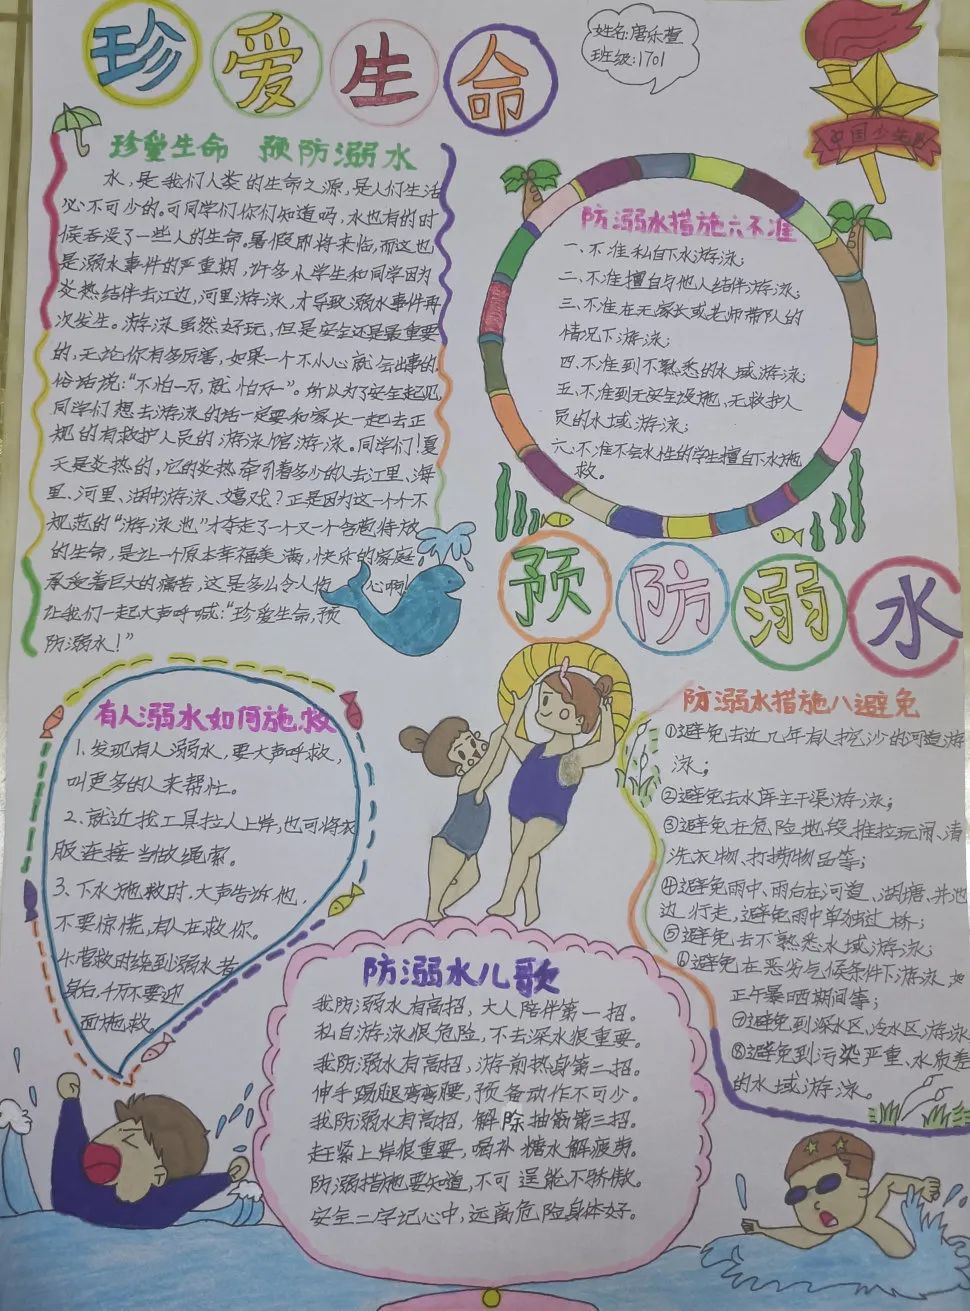 珍爱生命
姓名:唐乐萱
班级:1701
中国少先队
珍爱生命 预防溺水
水,是我们人类的生命之源,是人们生活
必不可少的。可同学们你们知道吗,水也有的时
候吞没了一些人的生命。暑假即将来临,而这也
是溺水事件的严重期,许多小学生和同学因为
炎热结伴去江边,河里游泳,才导致溺水事件再
次发生。游泳虽然好玩,但是安全还是最重要
的,无论你有多厉害,如果一个不小心就会出事的,
俗话说:“不怕一万,就怕万一”。所以为了安全起见,
同学们想去游泳的话一定要和家长一起去正
规的有救护人员的游泳馆游泳。同学们!夏
天是炎热的,它的炎热牵引着多少的人去江里、海
里、河里、湖中游泳、嬉戏?正是因为这一个个不
规范的“游泳池”才夺走了一个又一个含苞待放
的生命,是让一个原本幸福美满,快乐的家庭,
承受着巨大的痛苦,这是多么令人伤心啊!
让我们一起大声呼喊:“珍爱生命,预
防溺水!”
防溺水措施六不准
一、不准私自下水游泳;
二、不准擅自与他人结伴游泳;
三、不准在无家长或老师带队的
情况下游泳;
四、不准到不熟悉的水域游泳;
五、不准到无安全设施、无救护人
员的水域游泳;
六、不准不会水性的学生擅自下水施
救。
预防溺水
有人溺水如何施救
1、发现有人溺水,要大声呼救,
叫更多的人来帮忙。
2、就近找工具拉人上岸,也可将衣
服连接当做绳索。
3、下水施救时,大声告诉他,
不要惊慌,有人在救你。
4、营救时绕到溺水者
身后,千万不要迎
面施救。
防溺水措施八避免
①避免去近几年有人挖沙的河道游
泳;
②避免去水库主干渠游泳;
③避免在危险地段推拉玩闹、清
洗衣物、打捞物品等;
④避免雨中、雨后在河道、湖塘、井池
边行走,避免雨中单独过桥;
⑤避免去不熟悉水域游泳;
⑥避免在恶劣气候条件下游泳,如
正午暴晒期间等;
⑦避免到深水区,冷水区游泳
⑧避免到污染严重、水质差
的水域游泳。
防溺水儿歌
我防溺水有高招,大人陪伴第一招。
私自游泳很危险,不去深水很重要。
我防溺水有高招,游前热身第二招。
伸手踢腿弯弯腰,预备动作不可少。
我防溺水有高招,解除抽筋第三招。
赶紧上岸很重要,喝补糖水解疲劳。
防溺措施要知道,不可逞能不骄傲。
安全二字记心中,远离危险身体好。